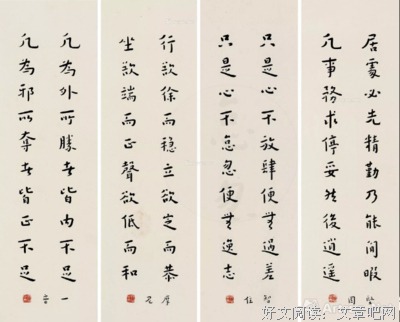 居處必先精勤乃能間暇
凡事務求停妥然後逍遥
只是心不放肆便無過差
只是心不怠忽便無逸志
智住
行欲徐而穩立欲定而恭
坐欲端而正聲欲低而和
摩尼
凡為外所勝者皆内不足
凡為邪所奪者皆正不足
一音
好文阅读：文章吧网